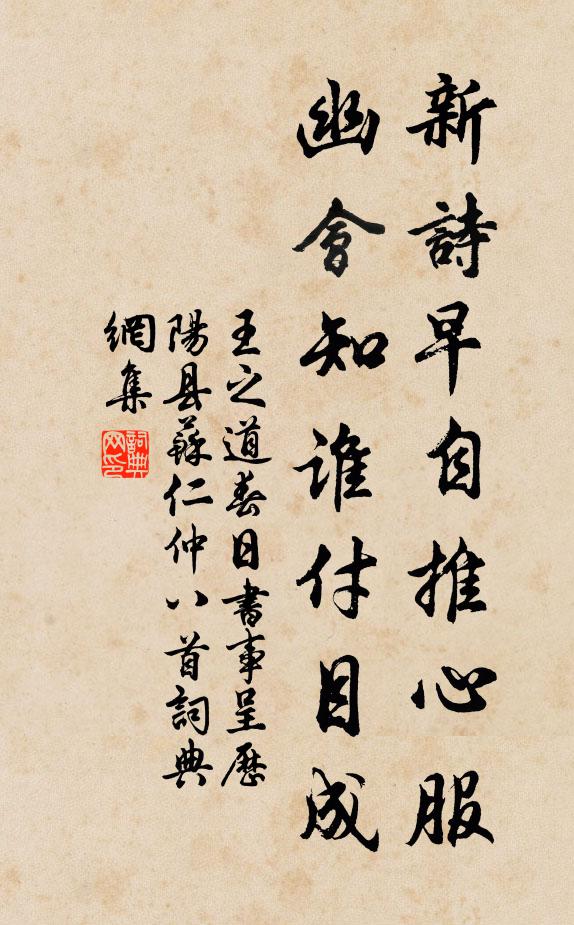 新詩早自推心服
幽會知誰付目成
王之道春日書事呈歷
陽县蘇仁仲八首詞典
網集
詞典網印